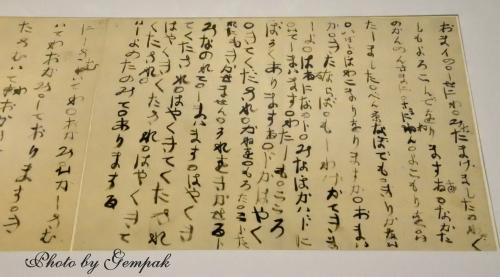 おまイの○しせにわ○みなたまけました○わたく
しもよろこんでをりまする○なかた
のかんのんさまに○さまにねん○よこもりを○いたし
ました○べん京なぼでも○きりかない
○いぼし○ほわこまりをりますか○おまい
か○きたならば○もしわけかてきま
しよ○はるになるト○みなほかイドに○
いてしまいます○わたしも○こころ
ぼそくありまする○ドかはやく
きてくだされ○かねを○もろた○こトた
れにもきかせません○それをきかせるト
みなのれて○しまいます○はやくき
てくたされ○はやくきてくたされ
はやくきてくたされ○はやくきてくたされ
いしよのたのみて○ありまする
にしさむ
いてわおかみひかしさむ
いてわおかみしております○き
たさむいてわおかみ
Photo by Gempak